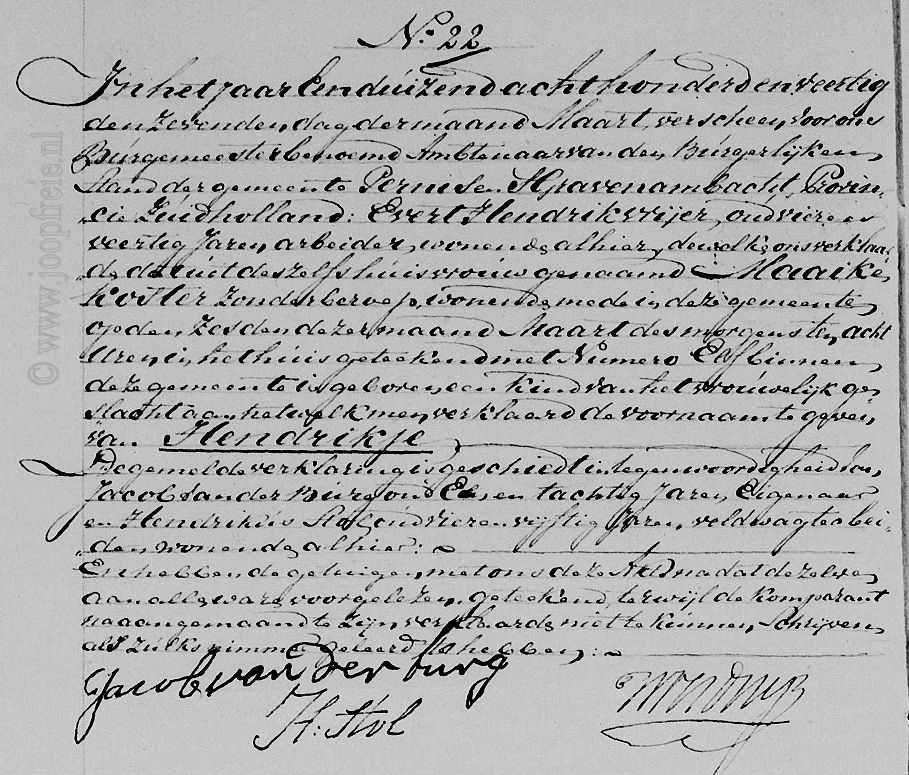 No. 22
In het jaar Eenduizend acht honderd en veertig
den zevenden dag der maand Maart, verscheen voor ons
Burgemeester benoemd Ambtenaar van den Burgerlijken
Stand der gemeente Pernis en S'Gravenambacht, Provin-
cie Zuidholland: Evert Hendriks vrijer, oud vier en
veertig Jaren, arbeider, wonende alhier, dewelke ons verklaar
de dat uit deszelfs huisvrouw genaamd Maaike
Koster zonder beroep, wonende mede in deze gemeente
op den Zesden dezer maand Maart des morgens ten acht
Uren, in het huis geteekend met Numero Elf binnen
deze gemeente is geboren een kind van het vrouwelijk ge-
slacht aan hetwelk men verklaard de voornaam te geven
van Hendrikje
De gemelde verklaring is geschiedt in tegenwoordigheid van
Jacob Van der Burg oud Een en tachtig Jaren, Eigenaar
en Hendrikus Stol oud vier en vijftig Jaren, veldwagter bei-
den wonende alhier:
En hebben de getuigen met ons deze Akte na dat dezelve
aan alle was voorgelezen, geteekend, terwijl de komparant
na aangemaand te zijn, verklaarde niet te kunnen Schrijven
als zulks nimmer geleerd te hebben:
Jacob van der burg
H: Stol
© www.joopfreie.nl